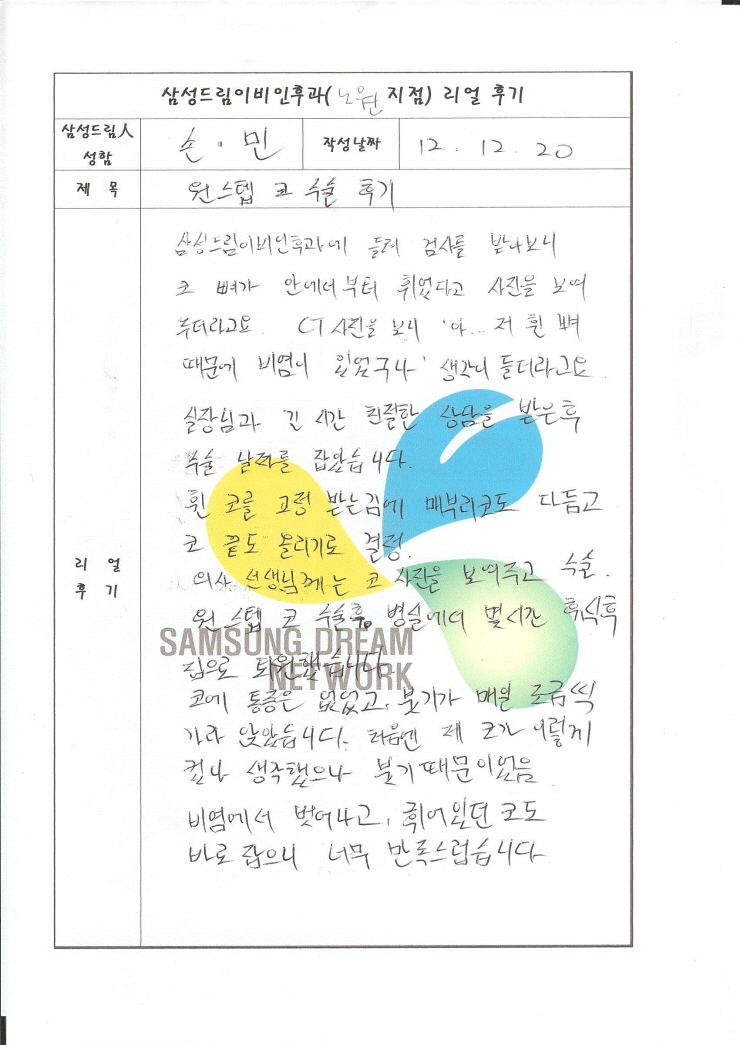 삼성드림이비인후과(노원 지점) 리얼 후기
삼성드림人 성함 손 · 민 작성날짜 12. 12. 20
제 목 원스텝 코 수술 후기
리 얼 후 기
삼성드림이비인후과에 들려 검사를 받아보니
코 뼈가 안에서부터 휘었다고 사진을 보여
주더라고요. CT 사진을 보니 '아... 저 휜 뼈
때문에 비염이 있었구나' 생각이 들더라고요.
실장님과 긴 시간 친절한 상담을 받은후
수술 날짜를 잡았습니다.
휜 코를 교정 받는김에 매부리코도 다듬고
코 끝도 올리기로 결정.
의사 선생님께는 코 사진을 보여주고 수술.
원 스텝 코 수술후, 병실에서 몇시간 휴식후
집으로 퇴원했습니다
코에 통증은 없었고, 붓기가 매일 조금씩
가라 앉았습니다. 처음엔 제 코가 이렇게
컸나 생각했으나 붓기때문이었음
비염에서 벗어나고, 휘어있던 코도
바로 잡으니 너무 만족스럽습니다
SAMSUNG DREAM
NETWORK